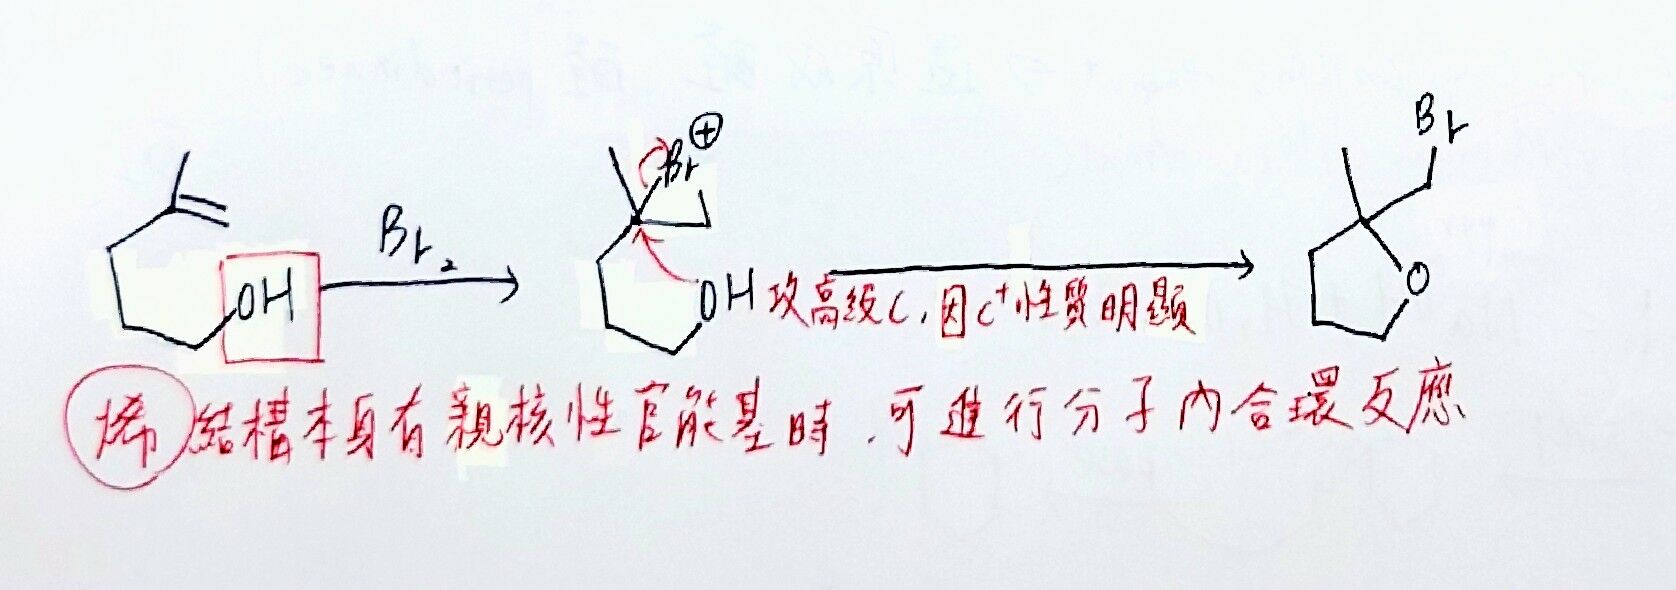 Br
Br⊕
Br₂
OH
OH
O
攻高級C,因C⁺性質明顯
烯結構本身有親核性官能基時,可進行分子內合環反應